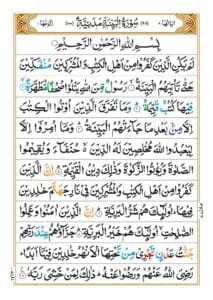 سُوْرَةُ الْبَيِّنَةِ مَدَنِيَّةٌ
بِسْمِ اللهِ الرَّحْمٰنِ الرَّحِيْمِ
لَمْ يَكُنِ الَّذِيْنَ كَفَرُوْا مِنْ اَهْلِ الْكِتٰبِ وَالْمُشْرِكِيْنَ مُنْفَكِّيْنَ
حَتّٰى تَاْتِيَهُمُ الْبَيِّنَةُ ۙ رَسُوْلٌ مِّنَ اللهِ يَتْلُوْا صُحُفًا مُّطَهَّرَةً ۙ
فِيْهَا كُتُبٌ قَيِّمَةٌ ؕ وَمَا تَفَرَّقَ الَّذِيْنَ اُوْتُوا الْكِتٰبَ
اِلَّا مِنْۢ بَعْدِ مَا جَآءَتْهُمُ الْبَيِّنَةُ ؕ وَمَآ اُمِرُوْٓا اِلَّا
لِيَعْبُدُوا اللهَ مُخْلِصِيْنَ لَهُ الدِّيْنَ ۙ حُنَفَآءَ وَيُقِيْمُوا
الصَّلٰوةَ وَيُؤْتُوا الزَّكٰوةَ وَذٰلِكَ دِيْنُ الْقَيِّمَةِ ؕ اِنَّ الَّذِيْنَ
كَفَرُوْا مِنْ اَهْلِ الْكِتٰبِ وَالْمُشْرِكِيْنَ فِيْ نَارِ جَهَنَّمَ خٰلِدِيْنَ
فِيْهَا ؕ اُولٰٓئِكَ هُمْ شَرُّ الْبَرِيَّةِ ؕ اِنَّ الَّذِيْنَ اٰمَنُوْا وَعَمِلُوا
الصّٰلِحٰتِ ۙ اُولٰٓئِكَ هُمْ خَيْرُ الْبَرِيَّةِ ؕ جَزَآؤُهُمْ عِنْدَ رَبِّهِمْ
جَنّٰتُ عَدْنٍ تَجْرِيْ مِنْ تَحْتِهَا الْاَنْهٰرُ خٰلِدِيْنَ فِيْهَآ اَبَدًا ؕ
رَضِيَ اللهُ عَنْهُمْ وَرَضُوْا عَنْهُ ؕ ذٰلِكَ لِمَنْ خَشِيَ رَبَّهٗ